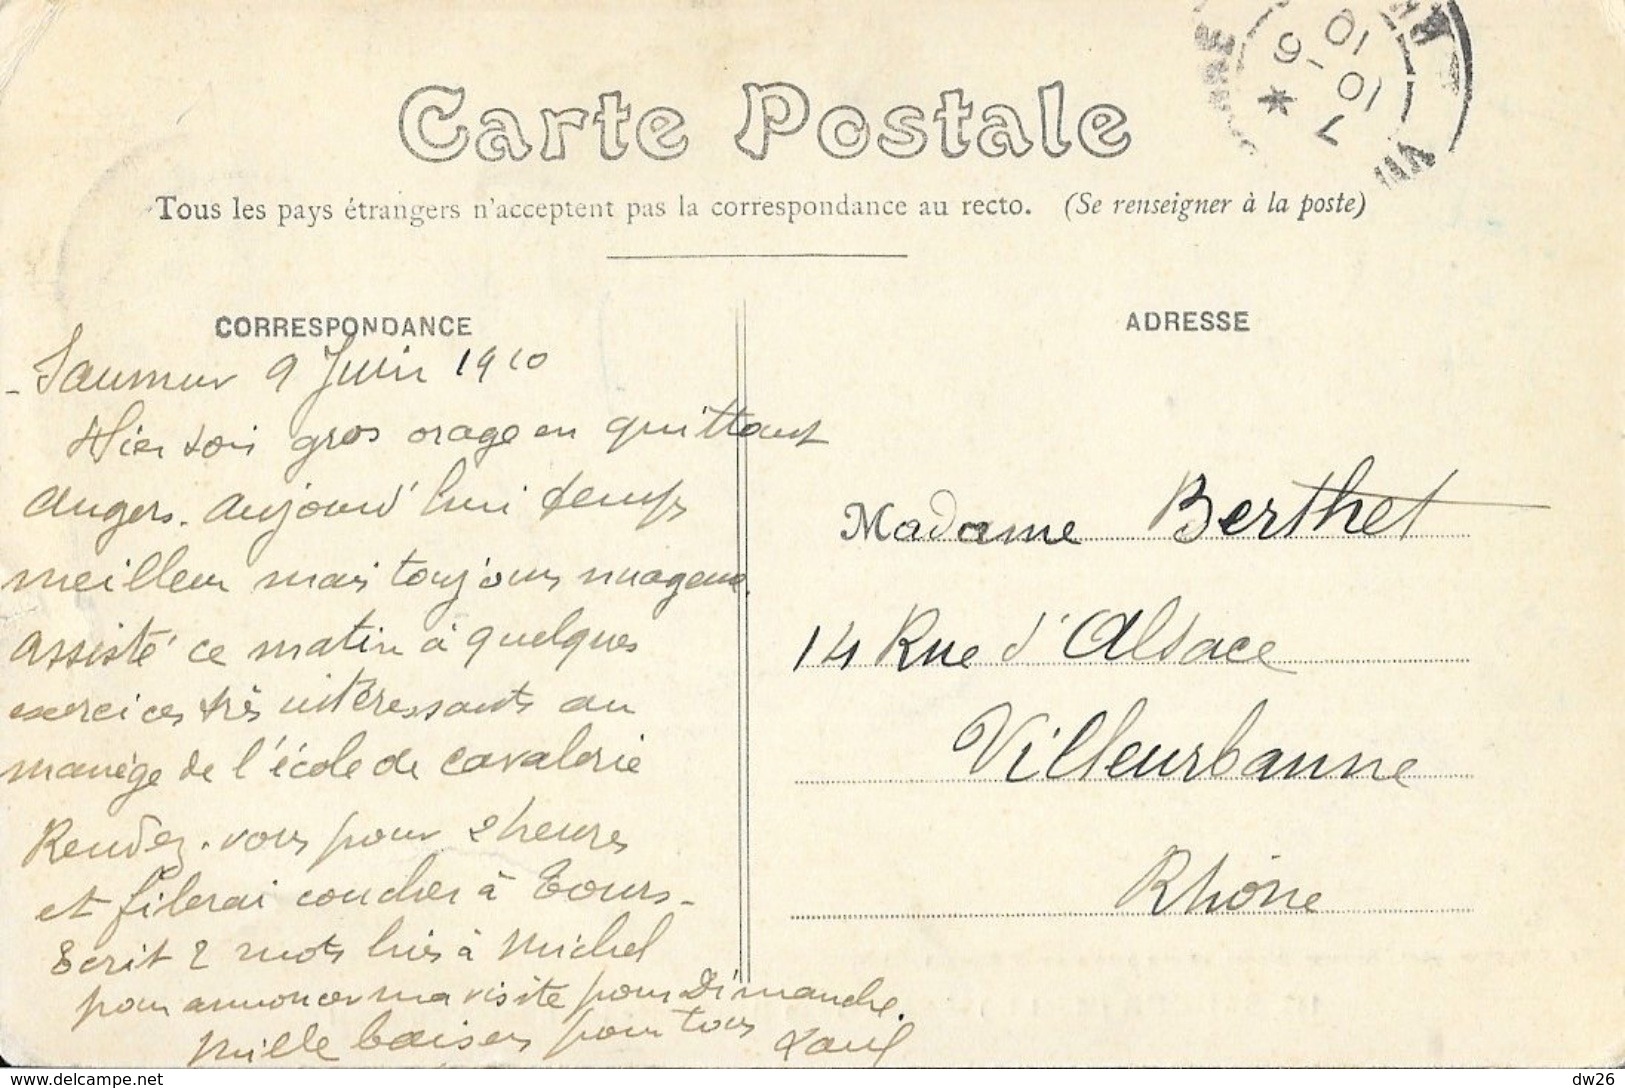 Carte Postale
Tous les pays étrangers n'acceptent pas la correspondance au recto. (Se renseigner à la poste)
CORRESPONDANCE
Saumur 9 Juin 1910
Hier soir gros orage en quittant
Angers. Aujourd'hui temps
meilleur mais toujours nuageux.
Assisté ce matin à quelques
exercices très intéressants au
manège de l'école de cavalerie
Rendez-vous pour 2 heures
et filerai coucher à Tours-
Ecrit 2 mots hier à Michel
pour annoncer ma visite pour Dimanche.
Mille baisers pour tous
ADRESSE
Madame Berthet
14 Rue d'Alsace
Villeurbanne
Rhône
7
10-6
10
dw26